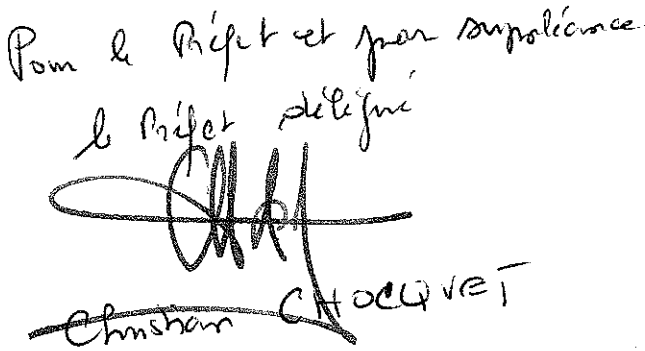 Pour le Préfet et par suppléance
le Préfet délégué
Christian CHOCQUET